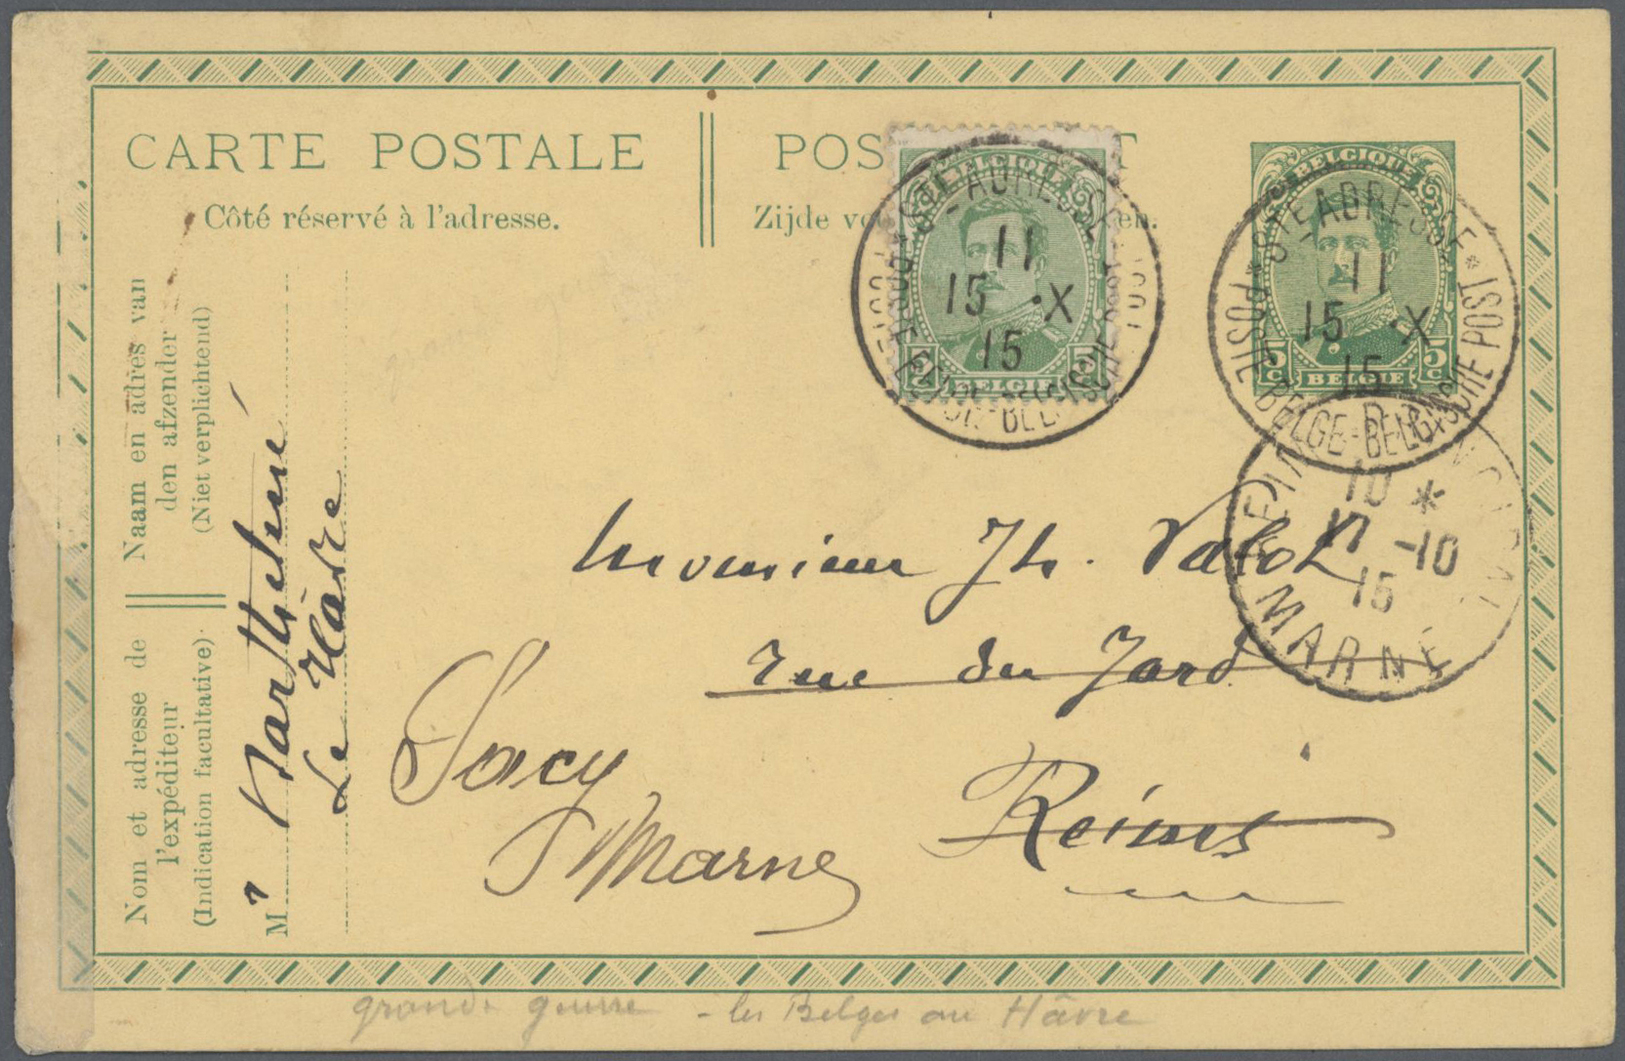 CARTE POSTALE
Côté réservé à l'adresse.
POS T
Zijde vo en.
BELGIQUE
5c 5c
BELGIE
STE ADRESSE
POSTE BELGE-BELGISCHE POST
11
15 ·X
15
BELGIQUE
5c 5c
BELGIE
STE ADRESSE
POSTE BELGE-BELGISCHE POST
11
15 ·X
15
10 *
17 -10
15
MARNE
Naam en adres van
den afzender
(Niet verplichtend)
Nom et adresse de
l'expéditeur
(Indication facultative).
Mr Barthelme
Le Havre
Monsieur Th. Valot
rue du Jard
Reims
Sacy
Marne
grande guerre - les Belges au Hâvre